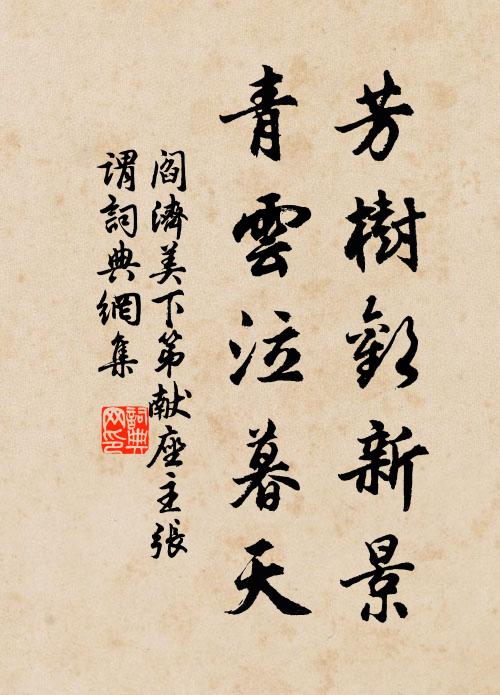 芳樹歡新景
青雲泣暮天
閻濟美下第献座主張
謂詞典網集
詞典
网印